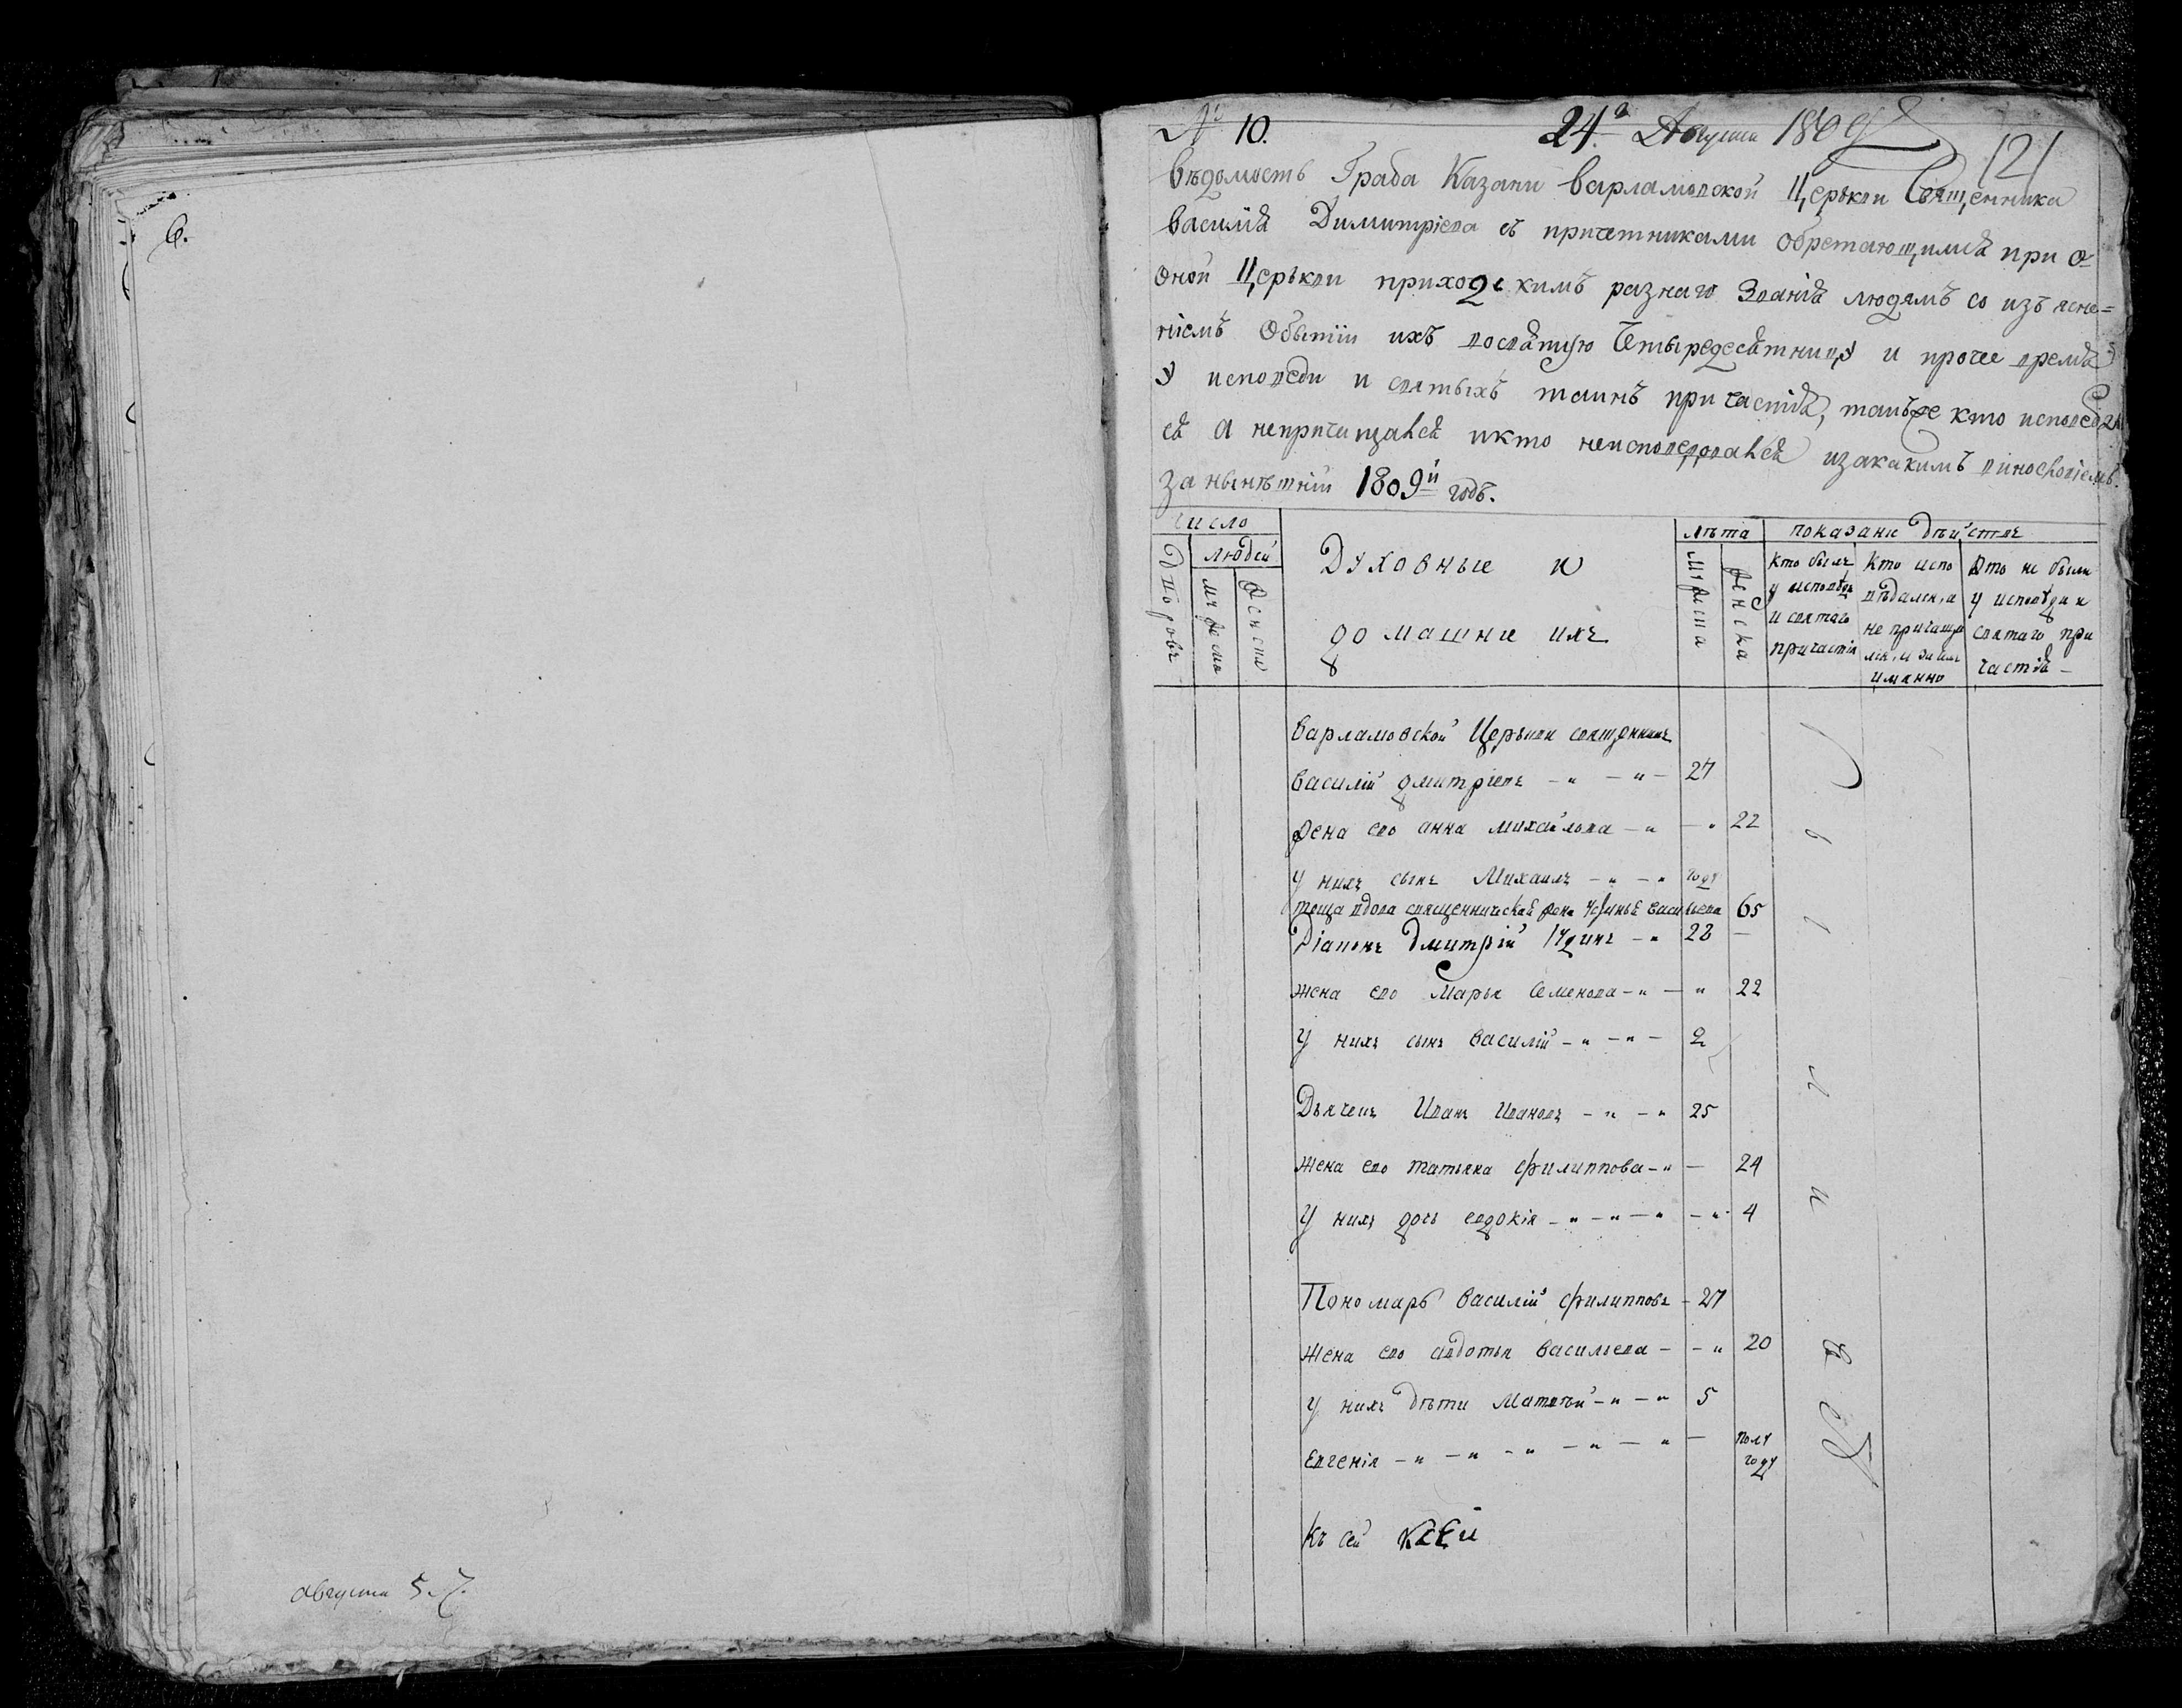 6.
августа 5.
№ 10.
24го Августа 1809
121
Вѣдомость Града Казани Варламовской Церькви Священника
Василія Димитріева съ причетниками обретающимся при о
оной Церькви приходскимъ разнаго званія людямъ со изъясне=
ніемъ о бытіи ихъ во святую Четыредесятницу и прочее время
у исповеди и святыхъ таинъ причастія, такъже кто исповедал
ся а непричищался и кто неисповедовался и за какимъ винословіемъ.
за нынѣшній 1809й годъ.
Число
людей
Дворовъ
мужеска
женска
Духовные и
домашніе ихъ
лѣта
мужеска
женска
показаніе дѣйствъ
Кто былъ
у исповѣди
и святаго
причастія
Кто испо
вѣдался, а
не причаща
лся, и за чем
имянно
Кто не были
у исповѣди и
святаго при
частія
Варламовской Церькви священникъ
Василій Дмитріевъ 27
Жена ево Анна Михайлова 22
У нихъ сынъ Михаилъ году
теща вдова священническая жена Уфимья Васильева 65
Діаконъ Дмитрій 28
Жена ево Марья Семенова 22
У нихъ сынъ Василій 2
Дьячекъ Иванъ Ивановъ 25
Жена ево Татьяна Филиппова 24
У нихъ дочь Евдокія 4
Пономарь Василій Филипповъ 27
Жена ево Авдотья Васильева 20
У нихъ дѣти Матвѣй 5
Евгенія полу
году
были
Къ сей